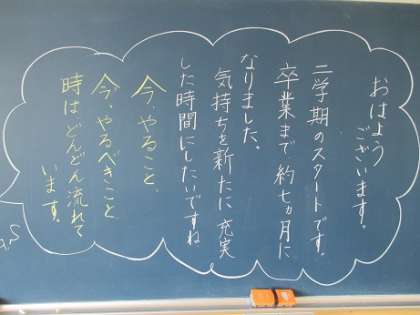 おはよう
ございます。
二学期のスタートです。
卒業まで約七ヵ月に
なりました、
気持ちを新たに充実
した時間にしたいですね
今、やること、
今、やるべきこと
時はどんどん流れて
います。